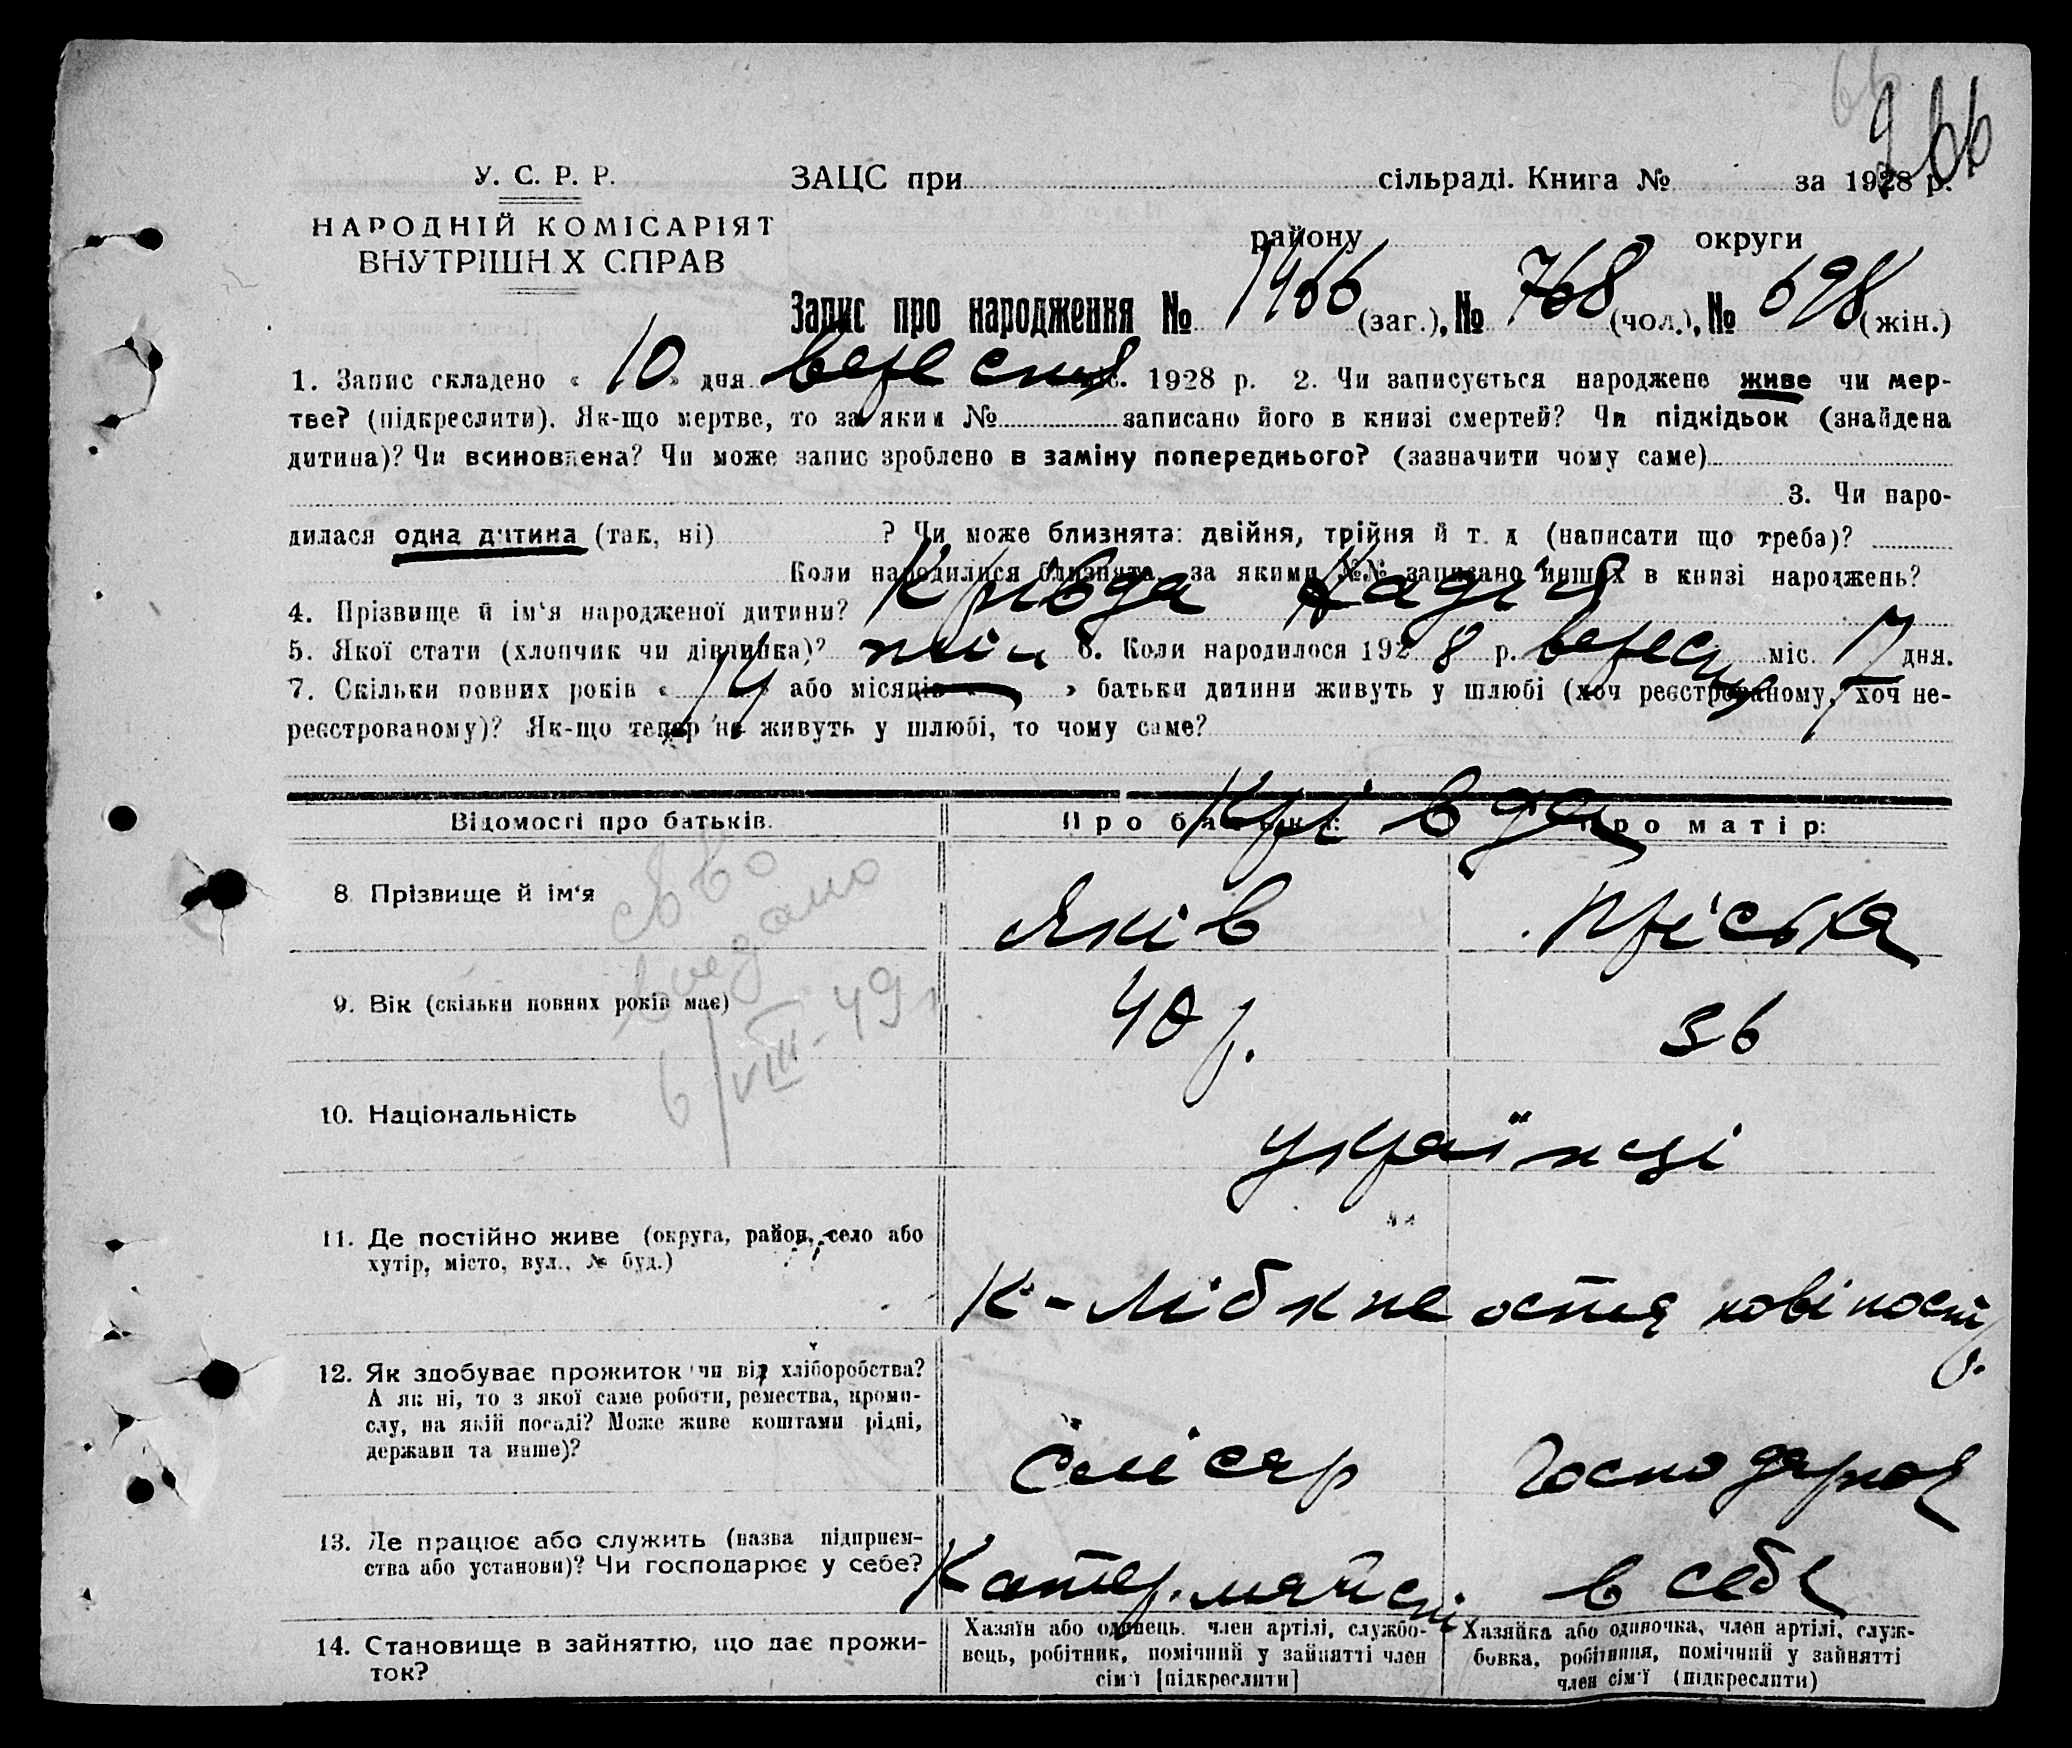 66
266
У. С. Р. Р.
ЗАЦС при сільраді. Книга № за 1928 р.
НАРОДНІЙ КОМІСАРІЯТ
ВНУТРІШН Х СПРАВ
району округи
Запис про народження № 1466 (заг.), № 768 (чол.), № 698 (жін.)
1. Запис складено « 10 » дня вересня міс. 1928 р. 2. Чи записується народжене живе чи мер-
тве? (підкреслити). Як-що мертве, то за яким № записано його в книзі смертей? Чи підкідьок (знайдена
дитина)? Чи всиновлена? Чи може запис зроблено в заміну попереднього? (зазначити чому саме)
3. Чи наро-
дилася одна дитина (так, ні) ? Чи може близнята: двійня, трійня й т. д (написати що треба)?
Коли народилися близнята, за якими №№ записано инших в книзі народжень?
4. Прізвище й ім‘я народженої дитини? Крівда Надія
5. Якої стати (хлопчик чи дівчинка)? жін 6. Коли народилося 1928 р. вересня міс. 7 дня.
7. Скільки повних років « 14 » або місяців « — » батьки дитини живуть у шлюбі (хоч реєстрованому, хоч не-
реєстрованому)? Як-що тепер не живуть у шлюбі, то чому саме?
Відомості про батьків. Про батька: Про матір:
Крівда
8. Прізвище й ім‘я Яків Пріська
9. Вік (скільки повних років має) 40 р. 36
св во
видано
6/VIII-49 г
10. Національність українці
11. Де постійно живе (округа, район, село або
хутір, місто, вул., № буд.)
12. Як здобуває прожиток чи від хліборобства?
А як ні, то з якої саме роботи, ремества, проми-
слу, на якій посаді? Може живе коштами рідні,
держави та инше)?
Слісар Господарює
13. Де працює або служить (назва підприєм-
ства або установи)? Чи господарює у себе?
Катер. майст в себе
14. Становище в зайняттю, що дає прожи-
ток?
Хазяїн або одинець, член артілі, службо-
вець, робітник, помічний у зайнятті член
сім‘ї [підкреслити]
Хазяйка або одиночка, член артілі, служ-
бовка, робітниця, помічний у зайнятті
член сім‘ї (підкреслити)